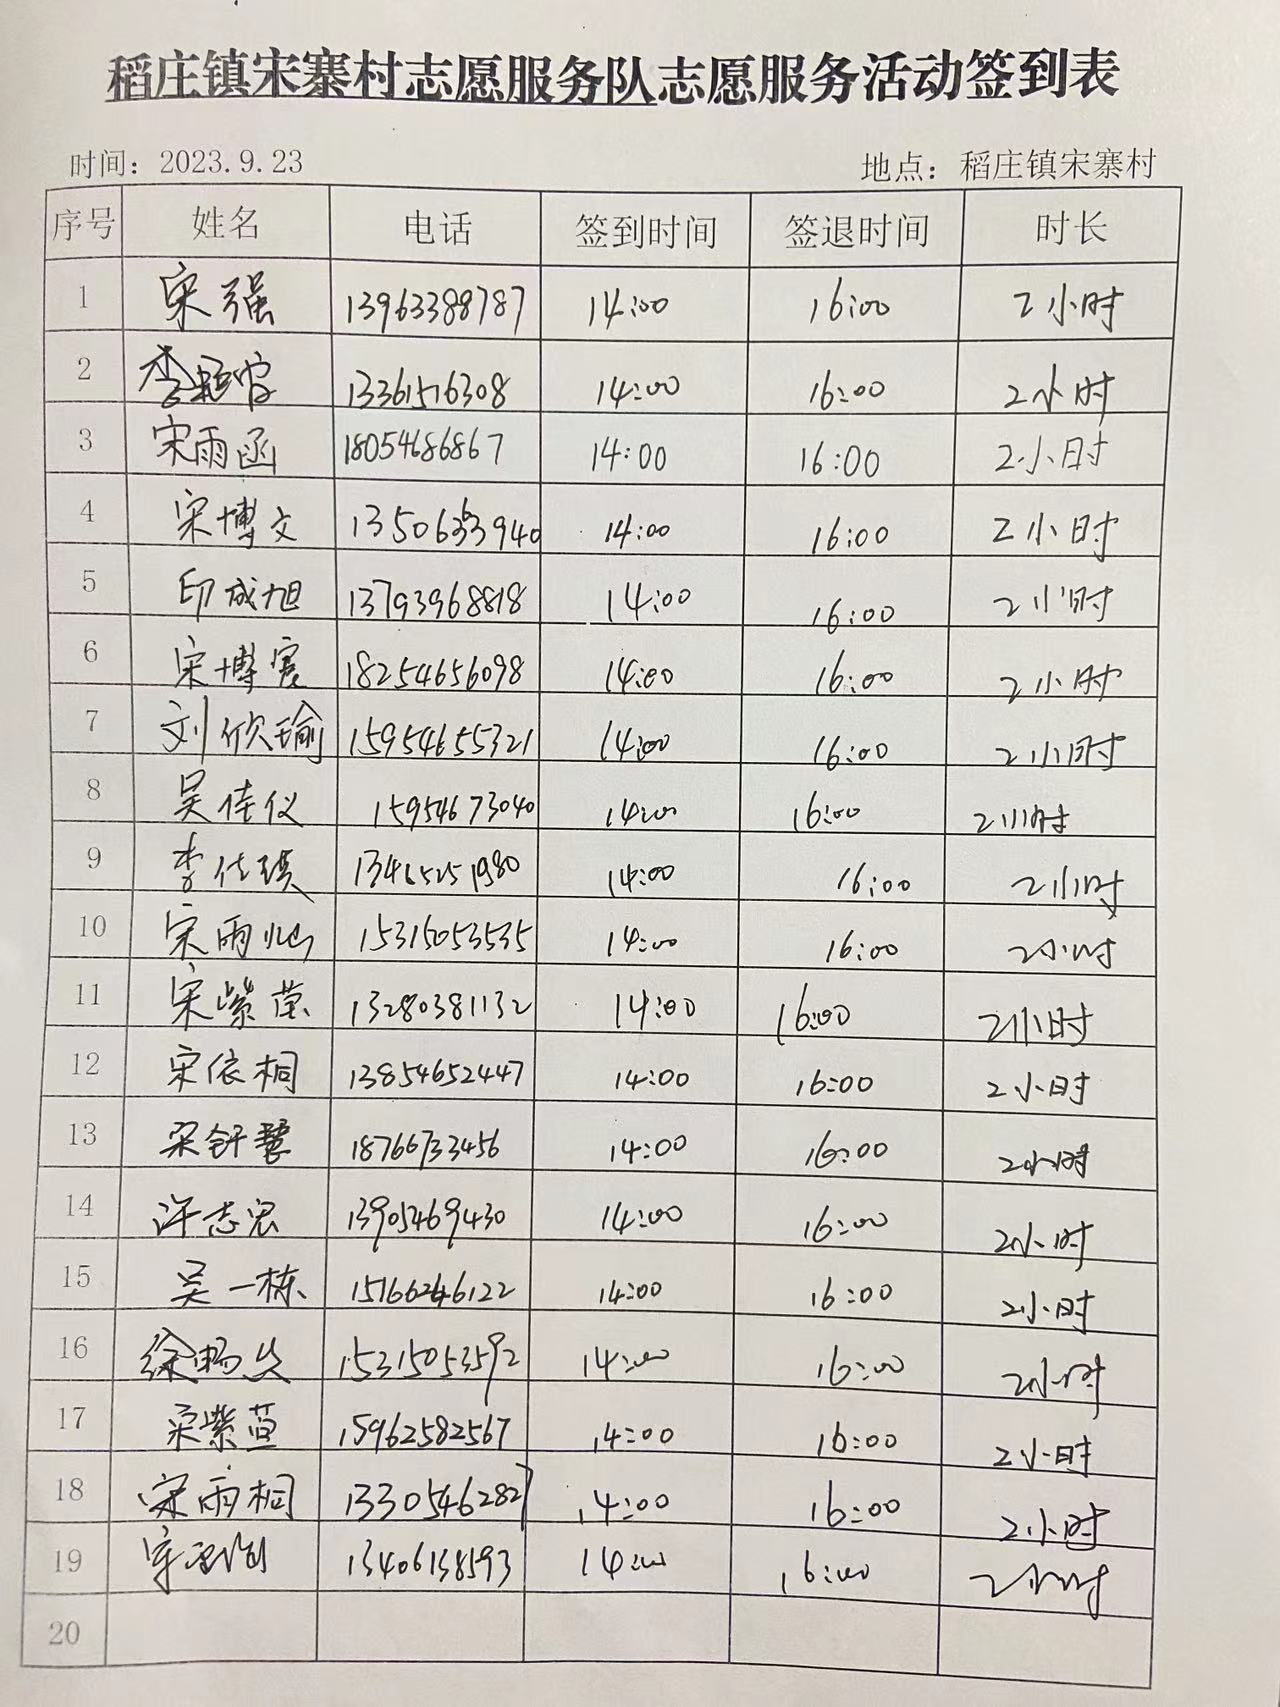 稻庄镇宋寨村志愿服务队志愿服务活动签到表
时间：2023.9.23 地点：稻庄镇宋寨村
序号 姓名 电话 签到时间 签退时间 时长
1 宋强 13963388787 14:00 16:00 2小时
2 李 13361516308 14:00 16:00 2小时
3 宋雨函 18054686867 14:00 16:00 2小时
4 宋博文 14:00 16:00 2小时
5 印成旭 13793968818 14:00 16:00 2小时
6 宋博宽 18254656098 14:00 16:00 2小时
7 刘欣瑜 15954655321 14:00 16:00 2小时
8 吴佳仪 15954673040 14:00 16:00 2小时
9 李佳琪 13465251980 14:00 16:00 2小时
10 宋雨灿 15315053535 14:00 16:00 2小时
11 宋紫萤 13280381132 14:00 16:00 2小时
12 宋依桐 13854652447 14:00 16:00 2小时
13 宋舒慧 18766733456 14:00 16:00 2小时
14 许志宏 13905469430 14:00 16:00 2小时
15 吴一栋 15166246122 14:00 16:00 2小时
16 徐畅 15315053592 14:00 16:00 2小时
17 宋紫萱 15962582567 14:00 16:00 2小时
18 宋雨桐 13305462827 14:00 16:00 2小时
19 13406138593 14:00 16:00 2小时
20